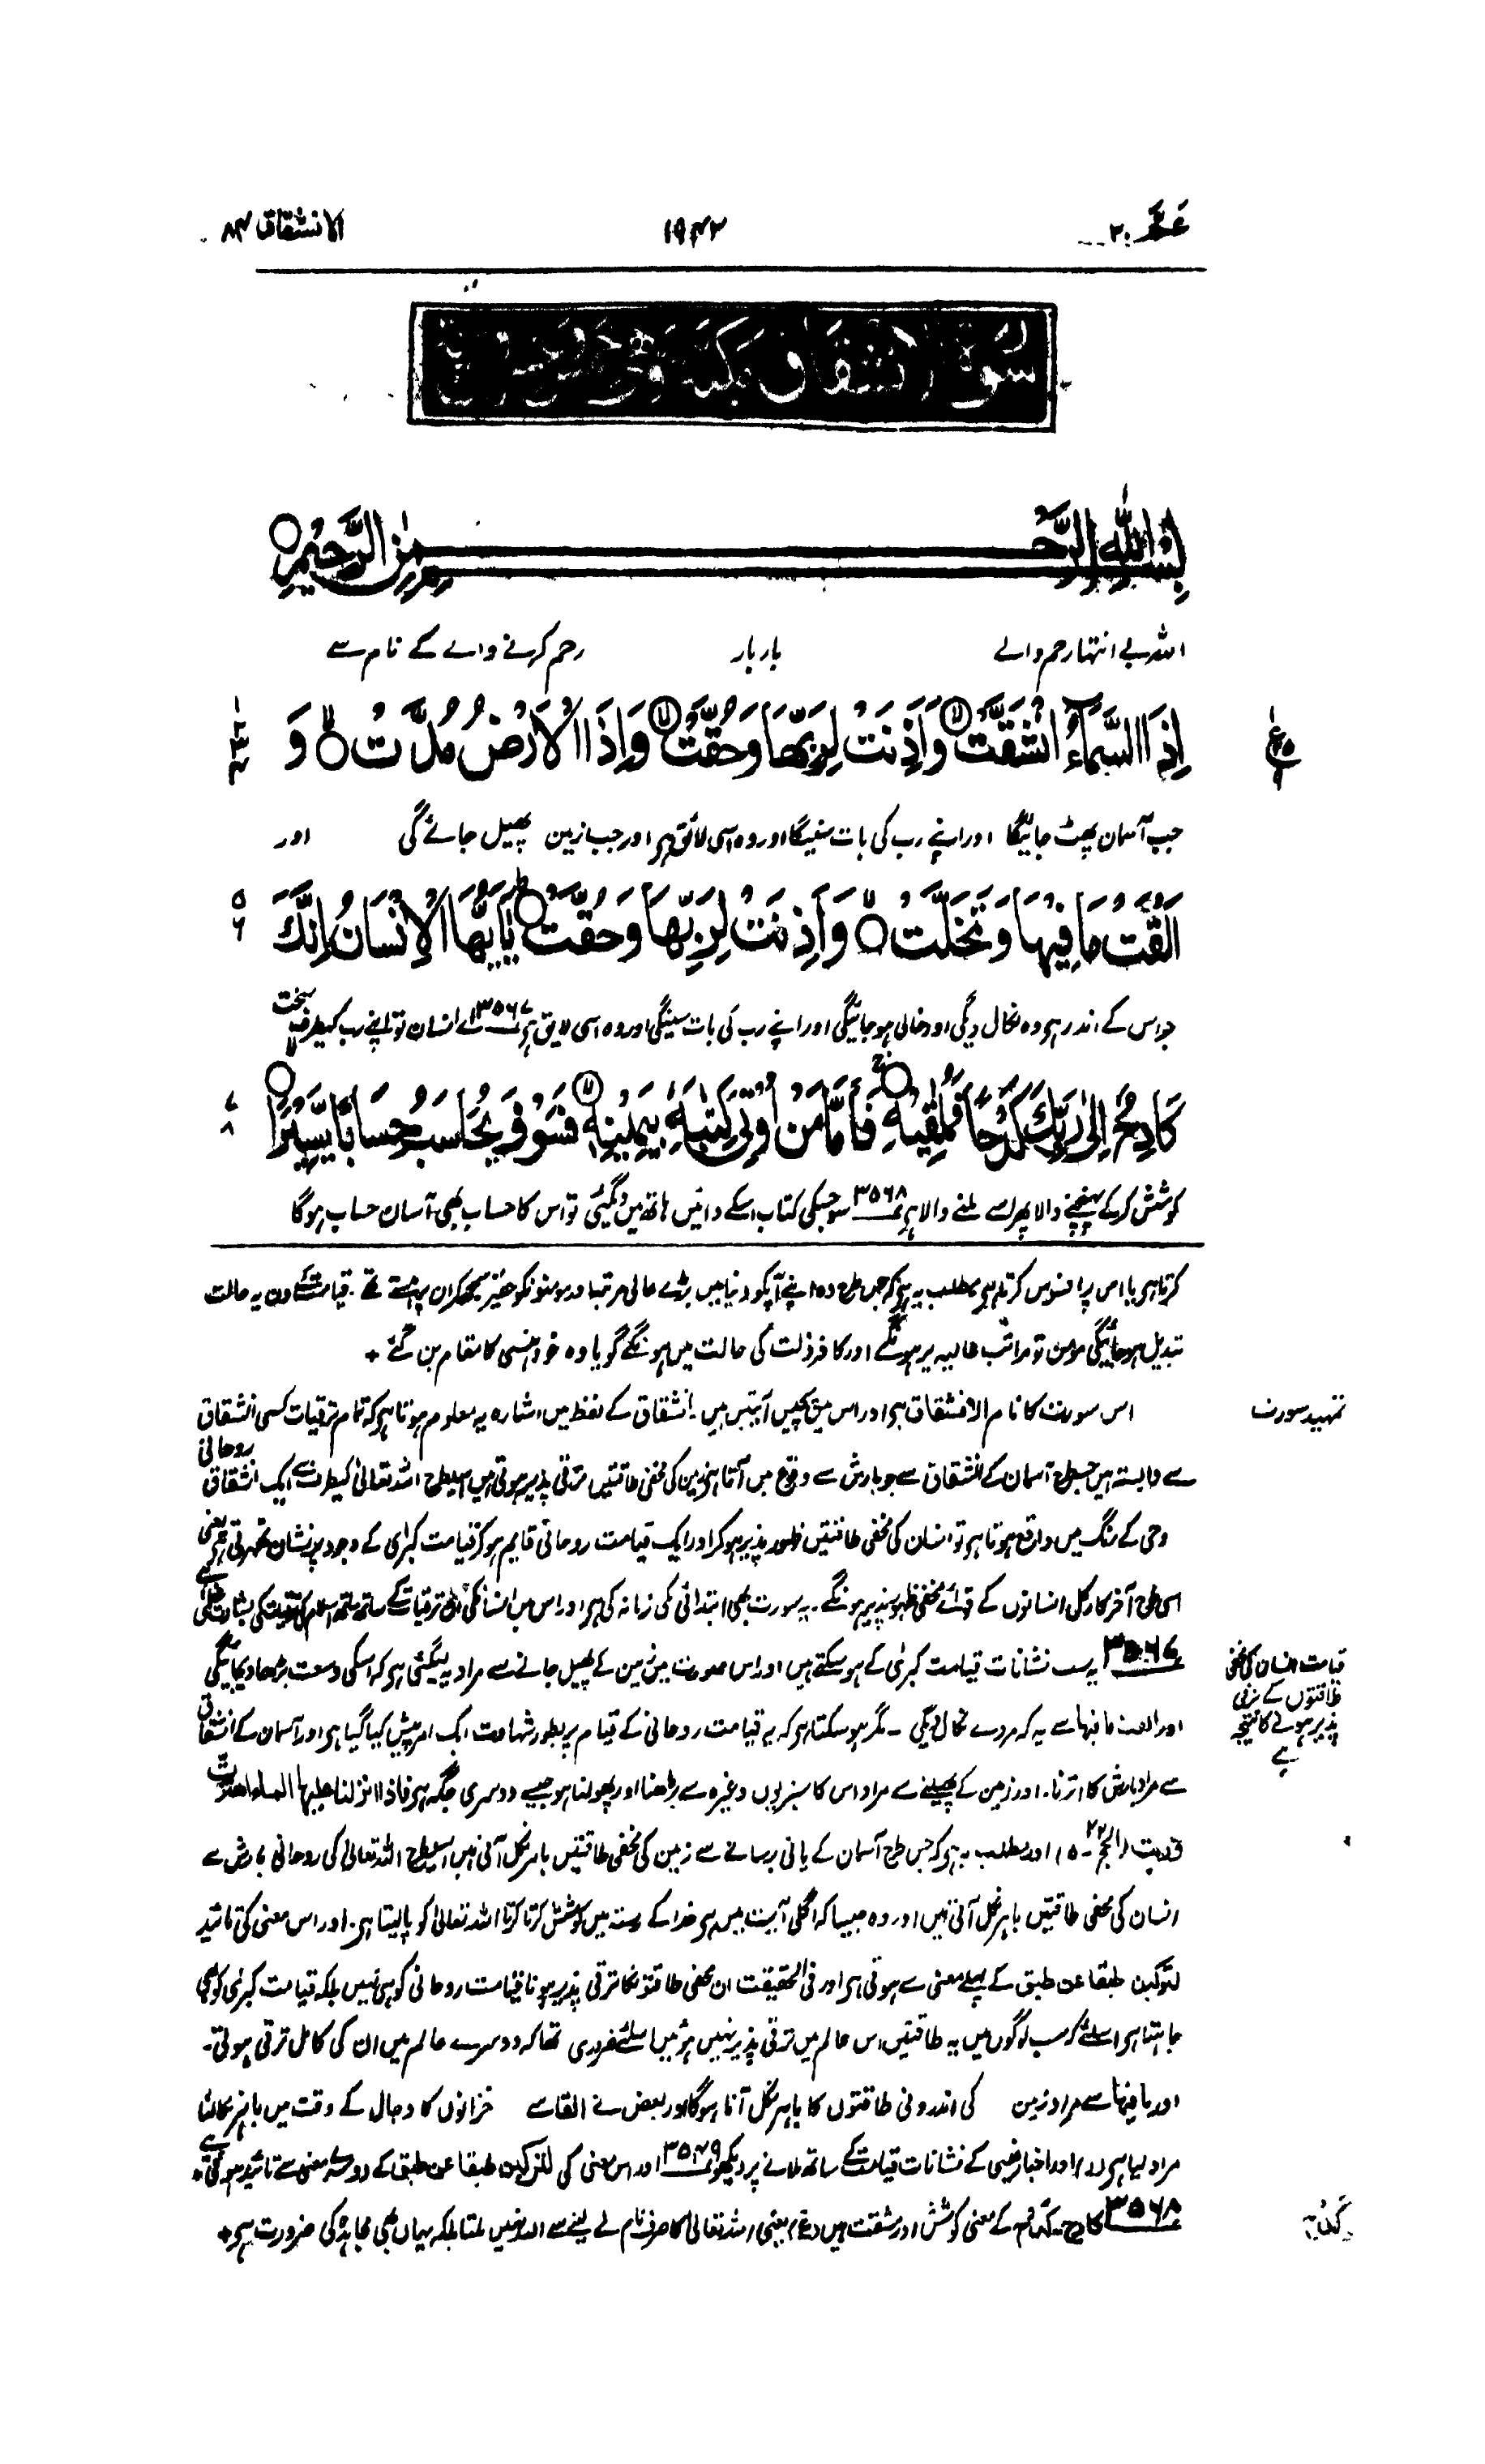 عمّ ۳۰ ۱۹۴۲ الانشقاق ۸۴
سورة الانشقاق مکیة وهی
بِسْمِ اللّٰهِ الرَّحْمٰنِ الرَّحِیْمِ
اللہ بے انتہا رحم والے بار بار رحم کرنے والے کے نام سے
اِذَا السَّمَآءُ انْشَقَّتْ وَاَذِنَتْ لِرَبِّهَا وَحُقَّتْ وَاِذَا الْاَرْضُ مُدَّتْ وَ
جب آسمان پھٹ جائیگا اور اپنے رب کی بات سنیگا اور وہ اسی لائق ہی اور جب زمین پھیل جائے گی اور
اَلْقَتْ مَا فِیْهَا وَتَخَلَّتْ وَاَذِنَتْ لِرَبِّهَا وَحُقَّتْ یٰٓاَیُّهَا الْاِنْسَانُ اِنَّكَ
جو اس کے اندر ہی وہ نکال دیگی اور خالی ہو جائیگی اور اپنے رب کی بات سنیگی اور وہ اسی لایق ہی ۳۵۶۷ اے انسان تو اپنے رب کیطرف سخت
كَادِحٌ اِلٰی رَبِّكَ كَدْحًا فَمُلٰقِیْهِ فَاَمَّا مَنْ اُوْتِیَ كِتٰبَهٗ بِیَمِیْنِهٖ فَسَوْفَ یُحَاسَبُ حِسَابًا یَّسِیْرًا
کوشش کرکے پہنچنے والا پھر اسے ملنے والا ہی ۳۵۶۸ سو جسکی کتاب اسکے دائیں ہاتھ میں دیگئی تو اس کا حساب بھی آسان حساب ہوگا
کرتا ہی یا اس پر افسوس کرتا ہی مطلب یہ ہی کہ جس طرح وہ اپنے آپکو دنیا میں بڑے عالی مرتبہ اور مومنونکو حقیر سمجھکر ان پر ہنستے تھے۔ قیامت کے دن یہ حالت
تبدیل ہو جائیگی مومن تو مراتب عالیہ پر ہونگے اور کافر ذلت کی حالت میں ہونگے گویا وہ خود ہنسی کا مقام بن گئے +
تمہید سورت
اس سورت کا نام الانشقاق ہی اور اس میں پچیس آیتیں ہیں۔ انشقاق کے لفظ میں اشارہ یہ معلوم ہوتا ہی کہ تمام ترقیات کسی انشقاق
سے وابستہ ہیں جسطرح آسمان کے انشقاق سے جو بارش سے وقوع میں آتا ہی زمین کی مخفی طاقتیں ترقی پذیر ہوتی ہیں اسیطرح اللہ تعالیٰ کیطرف سے ایک انشقاق روحانی
وحی کے رنگ میں واقع ہوتا ہی تو انسان کی مخفی طاقتیں ظہور پذیر ہو کر اور ایک قیامت روحانی قایم ہو کر قیامت کبرٰی کے وجود پر نشان ٹھہرتی ہی یعنی
اسی طرح آخر کار کل انسانوں کے قوائے مخفی ظہور پذیر ہونگے۔ یہ سورت بھی ابتدائی مکی زمانہ کی ہی اور اس میں انسان کی ترقیات کے ساتھ ساتھ اسلام کی
قیامت انسان کی مخفی
طاقتوں کے ترقی
پذیر ہونے کا نتیجہ
ہے
۳۵۶۷ یہ سب نشانات قیامت کبرٰی کے ہو سکتے ہیں اور اس صورت میں زمین کے پھیل جانے سے مراد یہ لیگئی ہی کہ اسکی وسعت بڑھا دیجائیگی
اور القت ما فیہا سے یہ کہ مردے نکال دیگی۔ مگر ہو سکتا ہی کہ یہ قیامت روحانی کے قیام پر بطور شہادت ایک امر پیش کیا گیا ہی اور آسمان کے انشقاق
سے مراد بارش کا اترنا۔ اور زمین کے پھیلنے سے مراد اس کا سبزیوں وغیرہ سے بڑھنا اور پھولنا ہو جیسے دوسری جگہ ہی فاذا انزلنا علیہا الماء اھتزت
وربت (الحج ۲۲-۵) اور مطلب یہ ہی کہ جس طرح آسمان کے پانی برسانے سے زمین کی مخفی طاقتیں باہر نکل آتی ہیں اسیطرح اللہ تعالیٰ کی روحانی بارش سے
انسان کی مخفی طاقتیں باہر نکل آتی ہیں اور وہ جیسا کہ اگلی آیت میں ہی خدا کے رستہ میں کوشش کرتا کرتا اللہ تعالیٰ کو پالیتا ہی۔ اور اس معنی کی تائید
لترکبن طبقا عن طبق کے پہلے معنی سے ہوتی ہی اور فی الحقیقت ان مخفی طاقتونکا ترقی پذیر ہونا قیامت روحانی کو ہی نہیں بلکہ قیامت کبرٰی کو بھی
چاہتا ہی اسلئے کہ سب لوگوں میں یہ طاقتیں اس عالم میں ترقی پذیر نہیں ہوئیں اسلئے ضروری تھا کہ دوسرے عالم میں ان کی کامل ترقی ہوتی۔
اور ما فیہا سے مراد زمین کی اندرونی طاقتوں کا باہر نکل آنا ہوگا اور بعض نے القا سے خزانوں کا دجال کے وقت میں باہر نکالنا
مراد لیا ہی (ر) اور اخبار غیبی کے نشانات قیامت کے ساتھ ملانے پر دیکھو ۳۵۴۹ اور اس معنی کی لترکبن طبقا عن طبق کے دوسرے معنی سے تائید ہوتی ہے +
کدح
۳۵۶۸ کادح۔ کدح کے معنی کوشش اور مشقت ہیں (غ) یعنی اللہ تعالیٰ کا صرف نام لے لینے سے اللہ نہیں ملتا بلکہ یہاں بھی مجاہدہ کی ضرورت ہی +